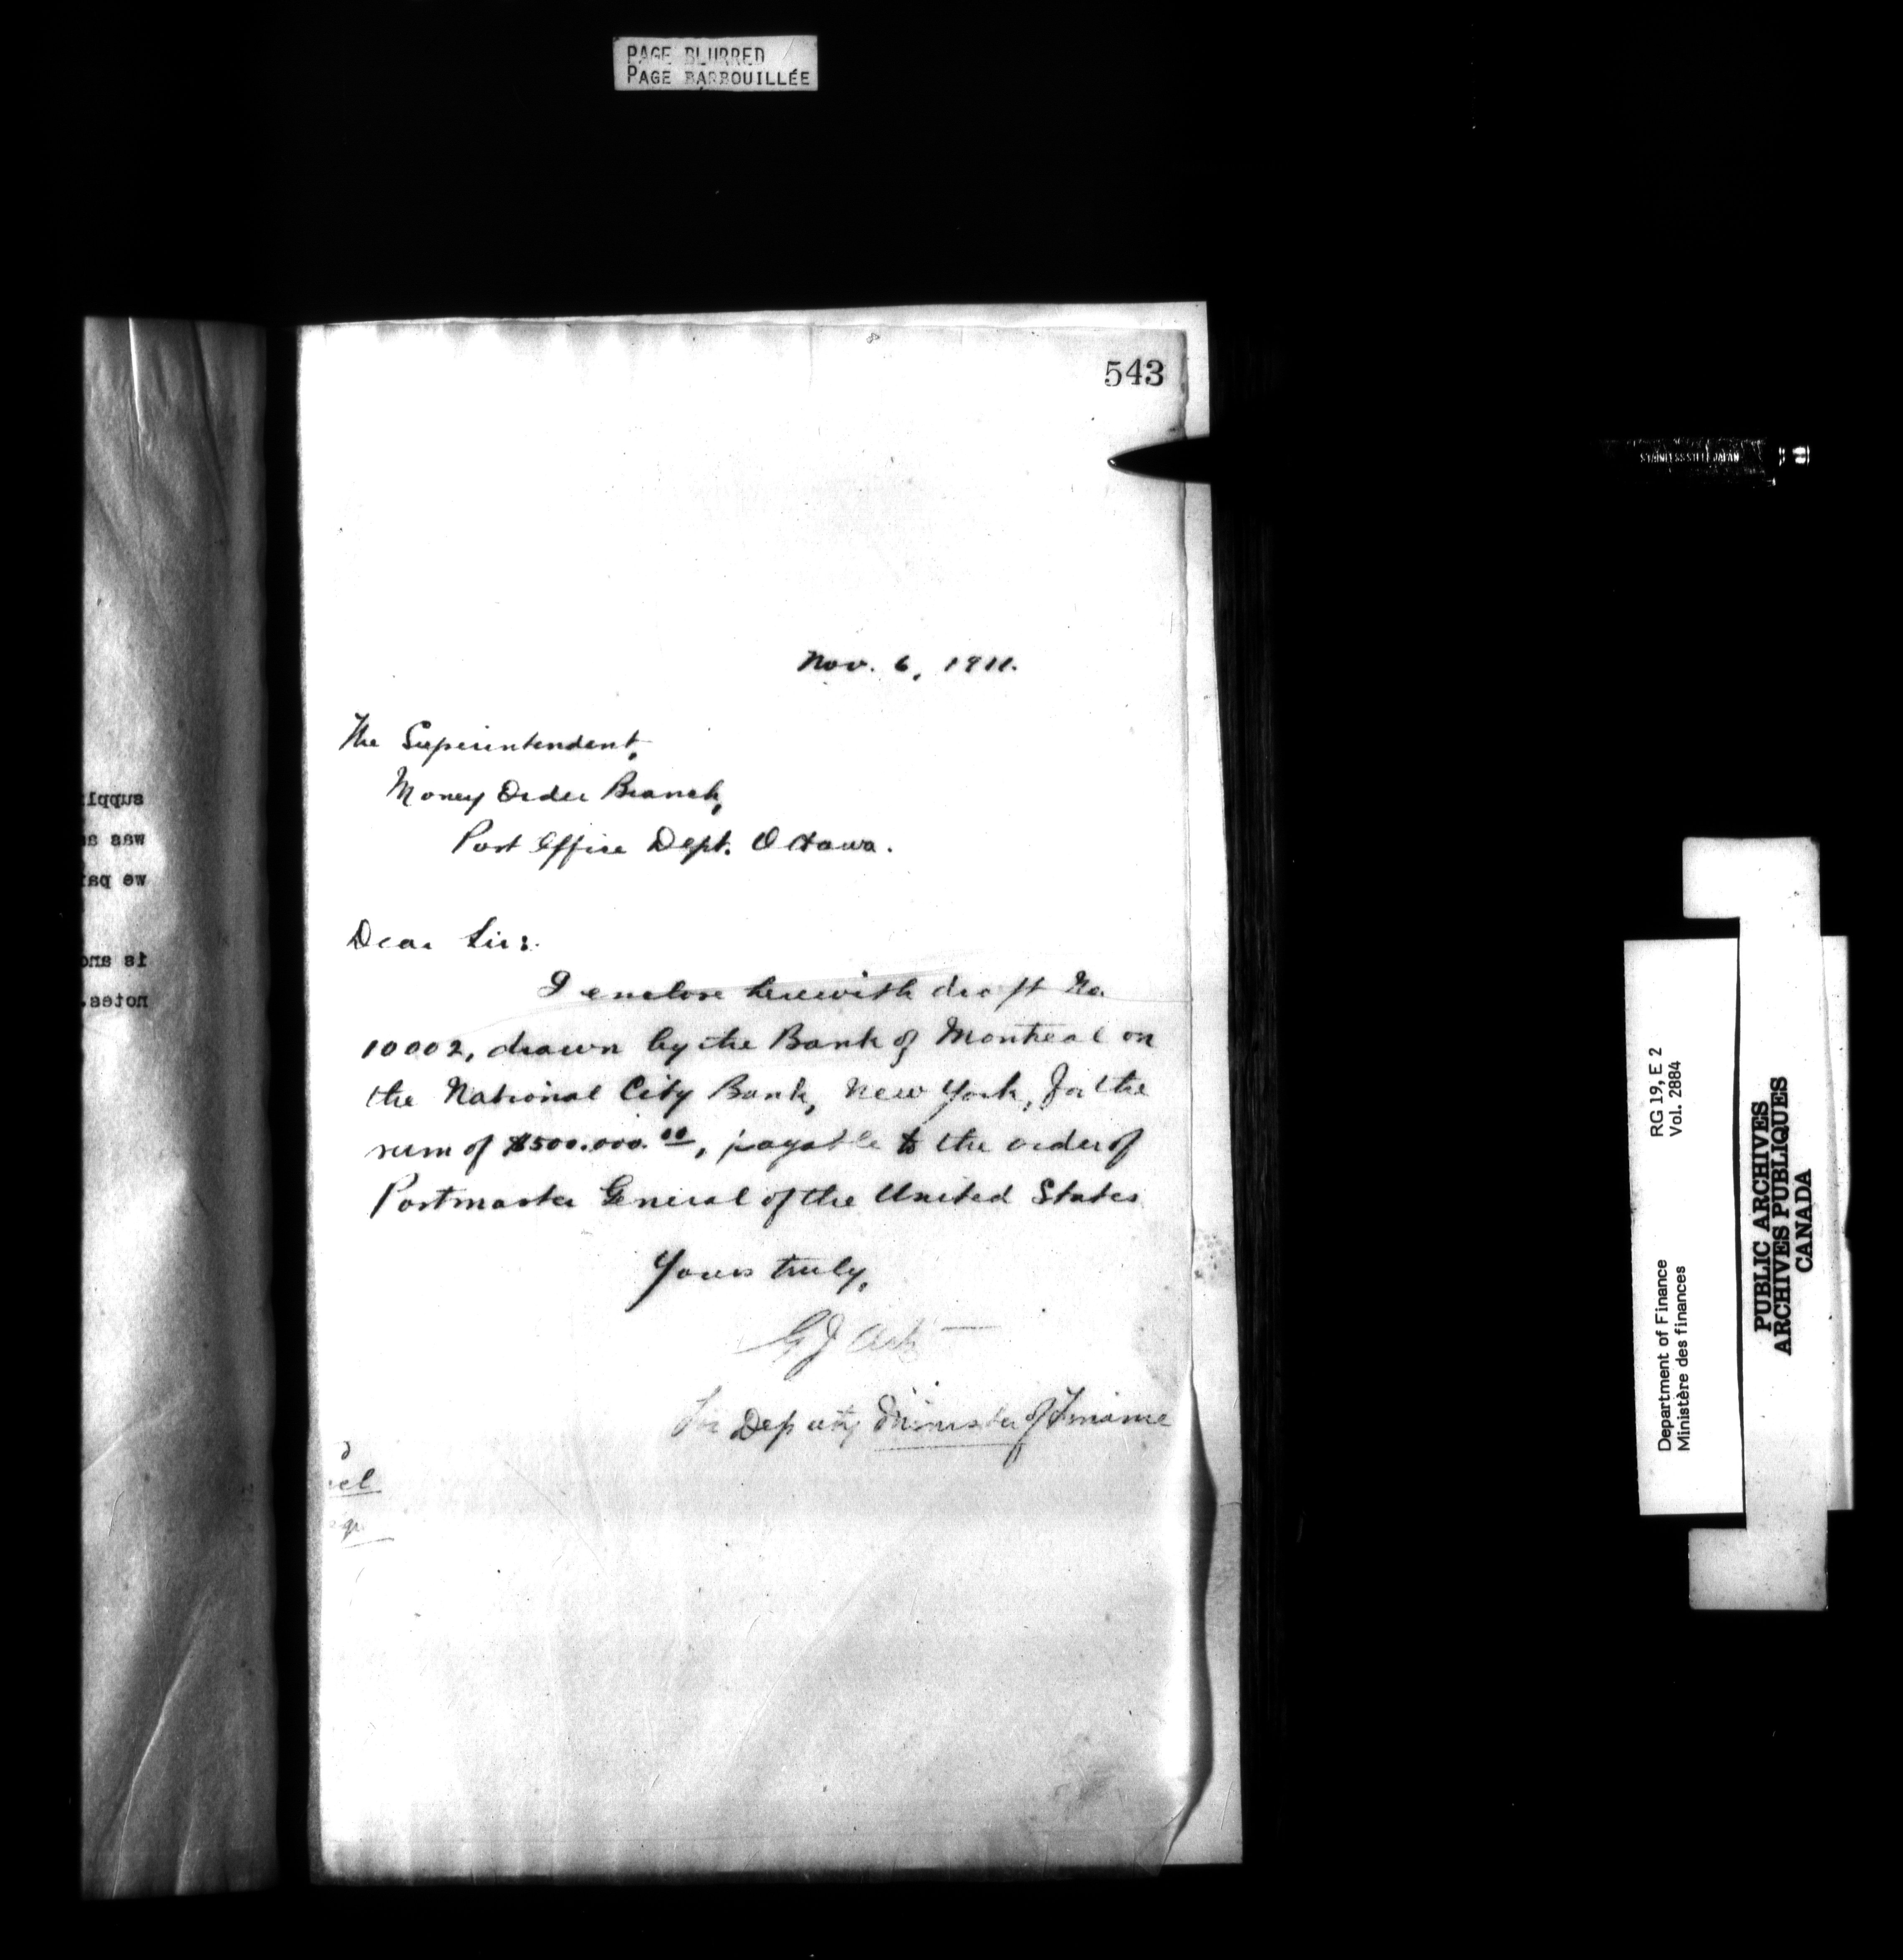 PAGE BLURRED
PAGE BARBOUILLÉE
543
Nov. 6, 1911.
The Superintendent,
Money Order Branch,
Post Office Dept. Ottawa.
Dear Sir:
I enclose herewith draft No.
10002, drawn by the Bank of Montreal on
the National City Bank, New York, for the
sum of $500.000.00, payable to the order of
Postmaster General of the United States
Yours truly,
For Deputy Minister of Finance
suppl
was a
we pa
is ano
notes.
STAINLESS STEEL JAPAN
RG 19, E 2
Vol. 2884
Department of Finance
Ministère des finances
PUBLIC ARCHIVES
ARCHIVES PUBLIQUES
CANADA